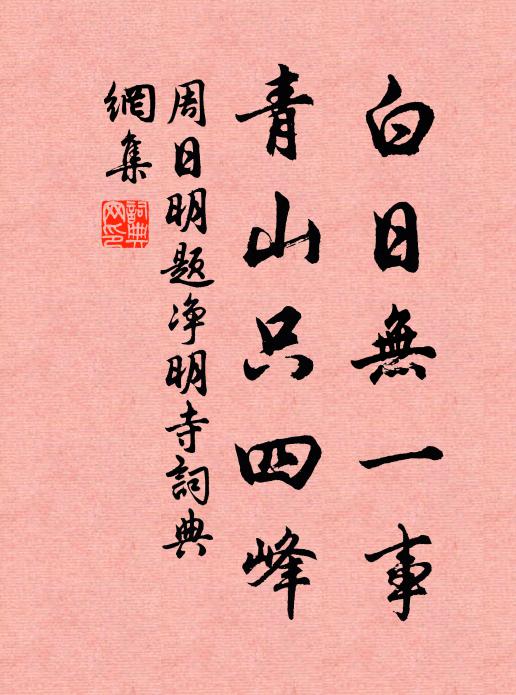 白日無一事
青山只四峰
周日明題净明寺詞典
網集
詞典
网印